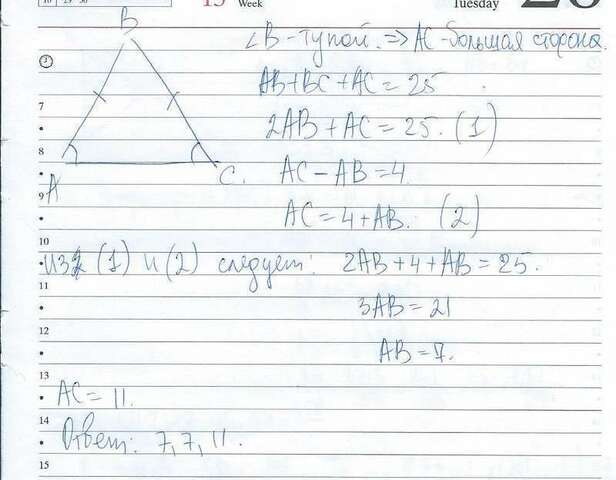 13 Week
Tuesday 26
B
∠B - тупой. => AC - большая сторона.
AB + BC + AC = 25
2AB + AC = 25. (1)
A
C.
AC - AB = 4.
AC = 4 + AB. (2)
Из (1) и (2) следует: 2AB + 4 + AB = 25.
3AB = 21
AB = 7.
AC = 11.
Ответ: 7, 7, 11.
7
8
9
10
11
12
13
14
15